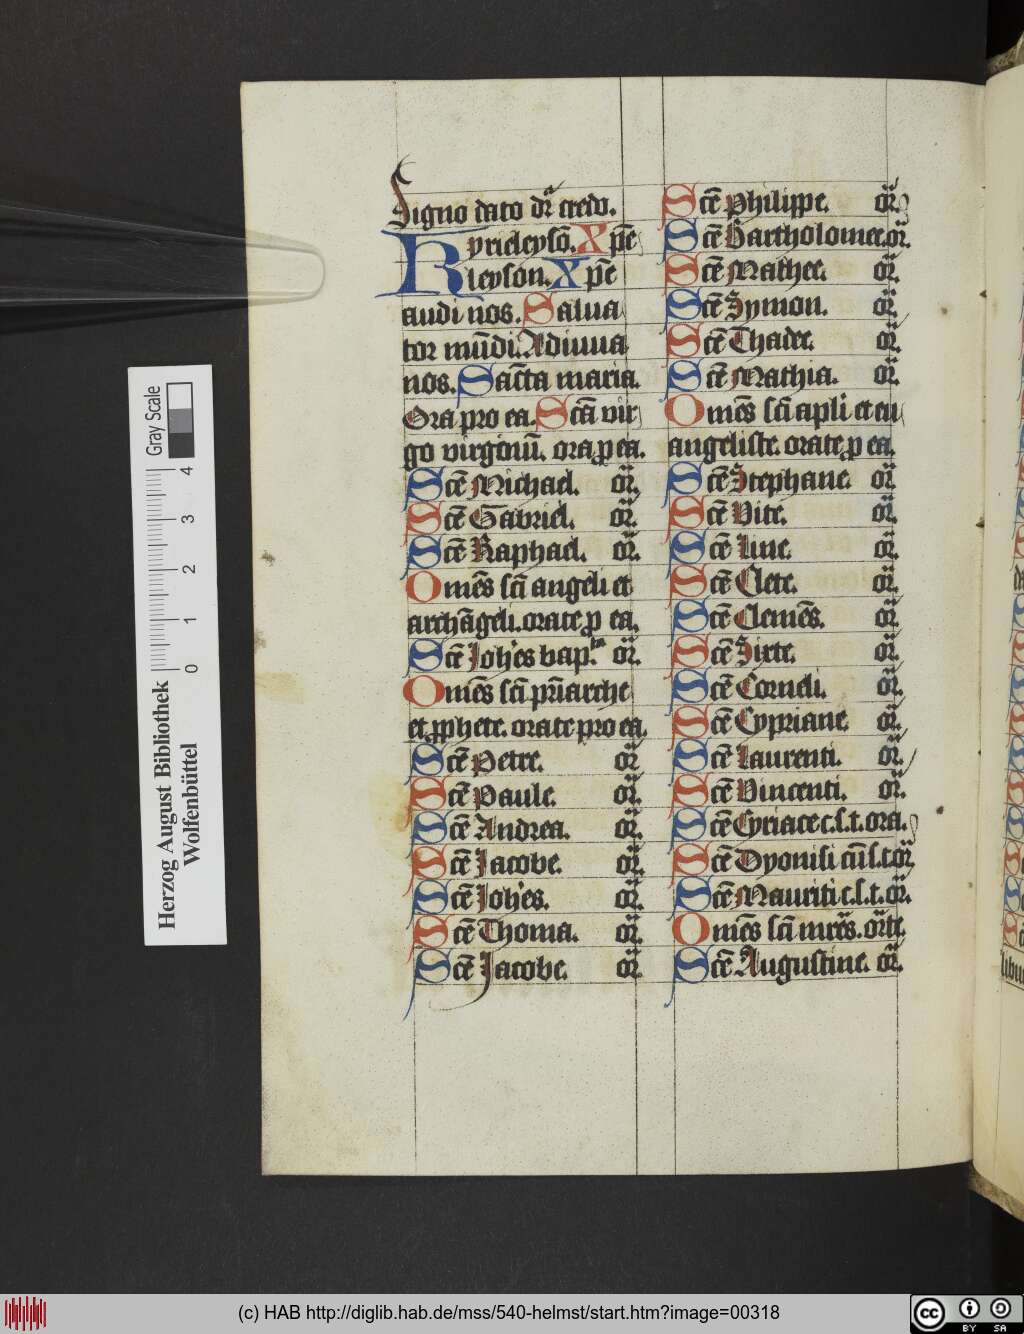 Signo dato dr̄ credo.
Kyrieleysō. Xp̄e
kleyson. Xp̄e
audi nos. Salua
tor mūdi. Adiuua
nos. Sācta maria.
Ora pro ea. Scā vir
go virginū. ora p ea.
Scē Michael. or̄.
Scē Gabriel. or̄.
Scē Raphael. or̄.
Omēs scī angeli et
archāgeli. orate p ea.
Scē Joh̄es bap.ta or̄.
Omēs scī pr̄iarche
et pphete. orate pro ea.
Scē Petre. or̄
Scē Paule. or̄.
Scē Andrea. or̄.
Scē Jacobe. or̄.
Scē Joh̄es. or̄.
Scē Thoma. or̄.
Scē Jacobe. or̄.
Scē Philippe. or̄.
Scē Bartholomee. or̄.
Scē Mathee. or̄.
Scē Symon. or̄.
Scē Thadee. or̄.
Scē Mathia. or̄.
Omēs scī apli et eu
angeliste. orate p ea.
Scē Stephane. or̄.
Scē Vite. or̄.
Scē Line. or̄.
Scē Clete. or̄.
Scē Clemēs. or̄.
Scē Sixte. or̄.
Scē Corneli. or̄.
Scē Cypriane. or̄.
Scē Laurenti. or̄.
Scē Vincenti. or̄.
Scē Cyriace c.s.t. ora.
Scē Dyonisi cū s.t. or̄
Scē Mauriti c.s.t. or̄.
Omēs scī mr̄es. or̄te.
Scē Augustine. or̄.
Herzog August Bibliothek
Wolfenbüttel
0 1 2 3 4
Gray Scale
(c) HAB http://diglib.hab.de/mss/540-helmst/start.htm?image=00318
cc BY SA